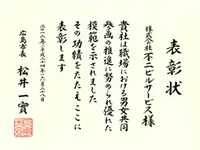 表彰状
株式会社 不二ビルサービス様
貴社は職場における男女共同
参画の推進に努められ優れた
模範を示されました
その功績をたたえここに
表彰します
広島市長
松井一實